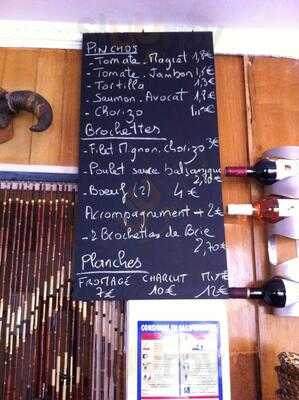 PINCHOS
- Tomate - Magret 1,8€
- Tomate - Jambon 1,5€
- Tortilla 1,3€
- Saumon - Avocat 1,8€
- Chorizo
Brochettes
- Filet Mignon. Chorizo 3€
- Poulet sauce balsamique
2,80€
- Boeuf (2) 4€
Accompagnement + 2€
- 2 Brochettes de Brie
2,70€
Planches
FROMAGE CHARCUT MIXTE
7€ 10€ 12€